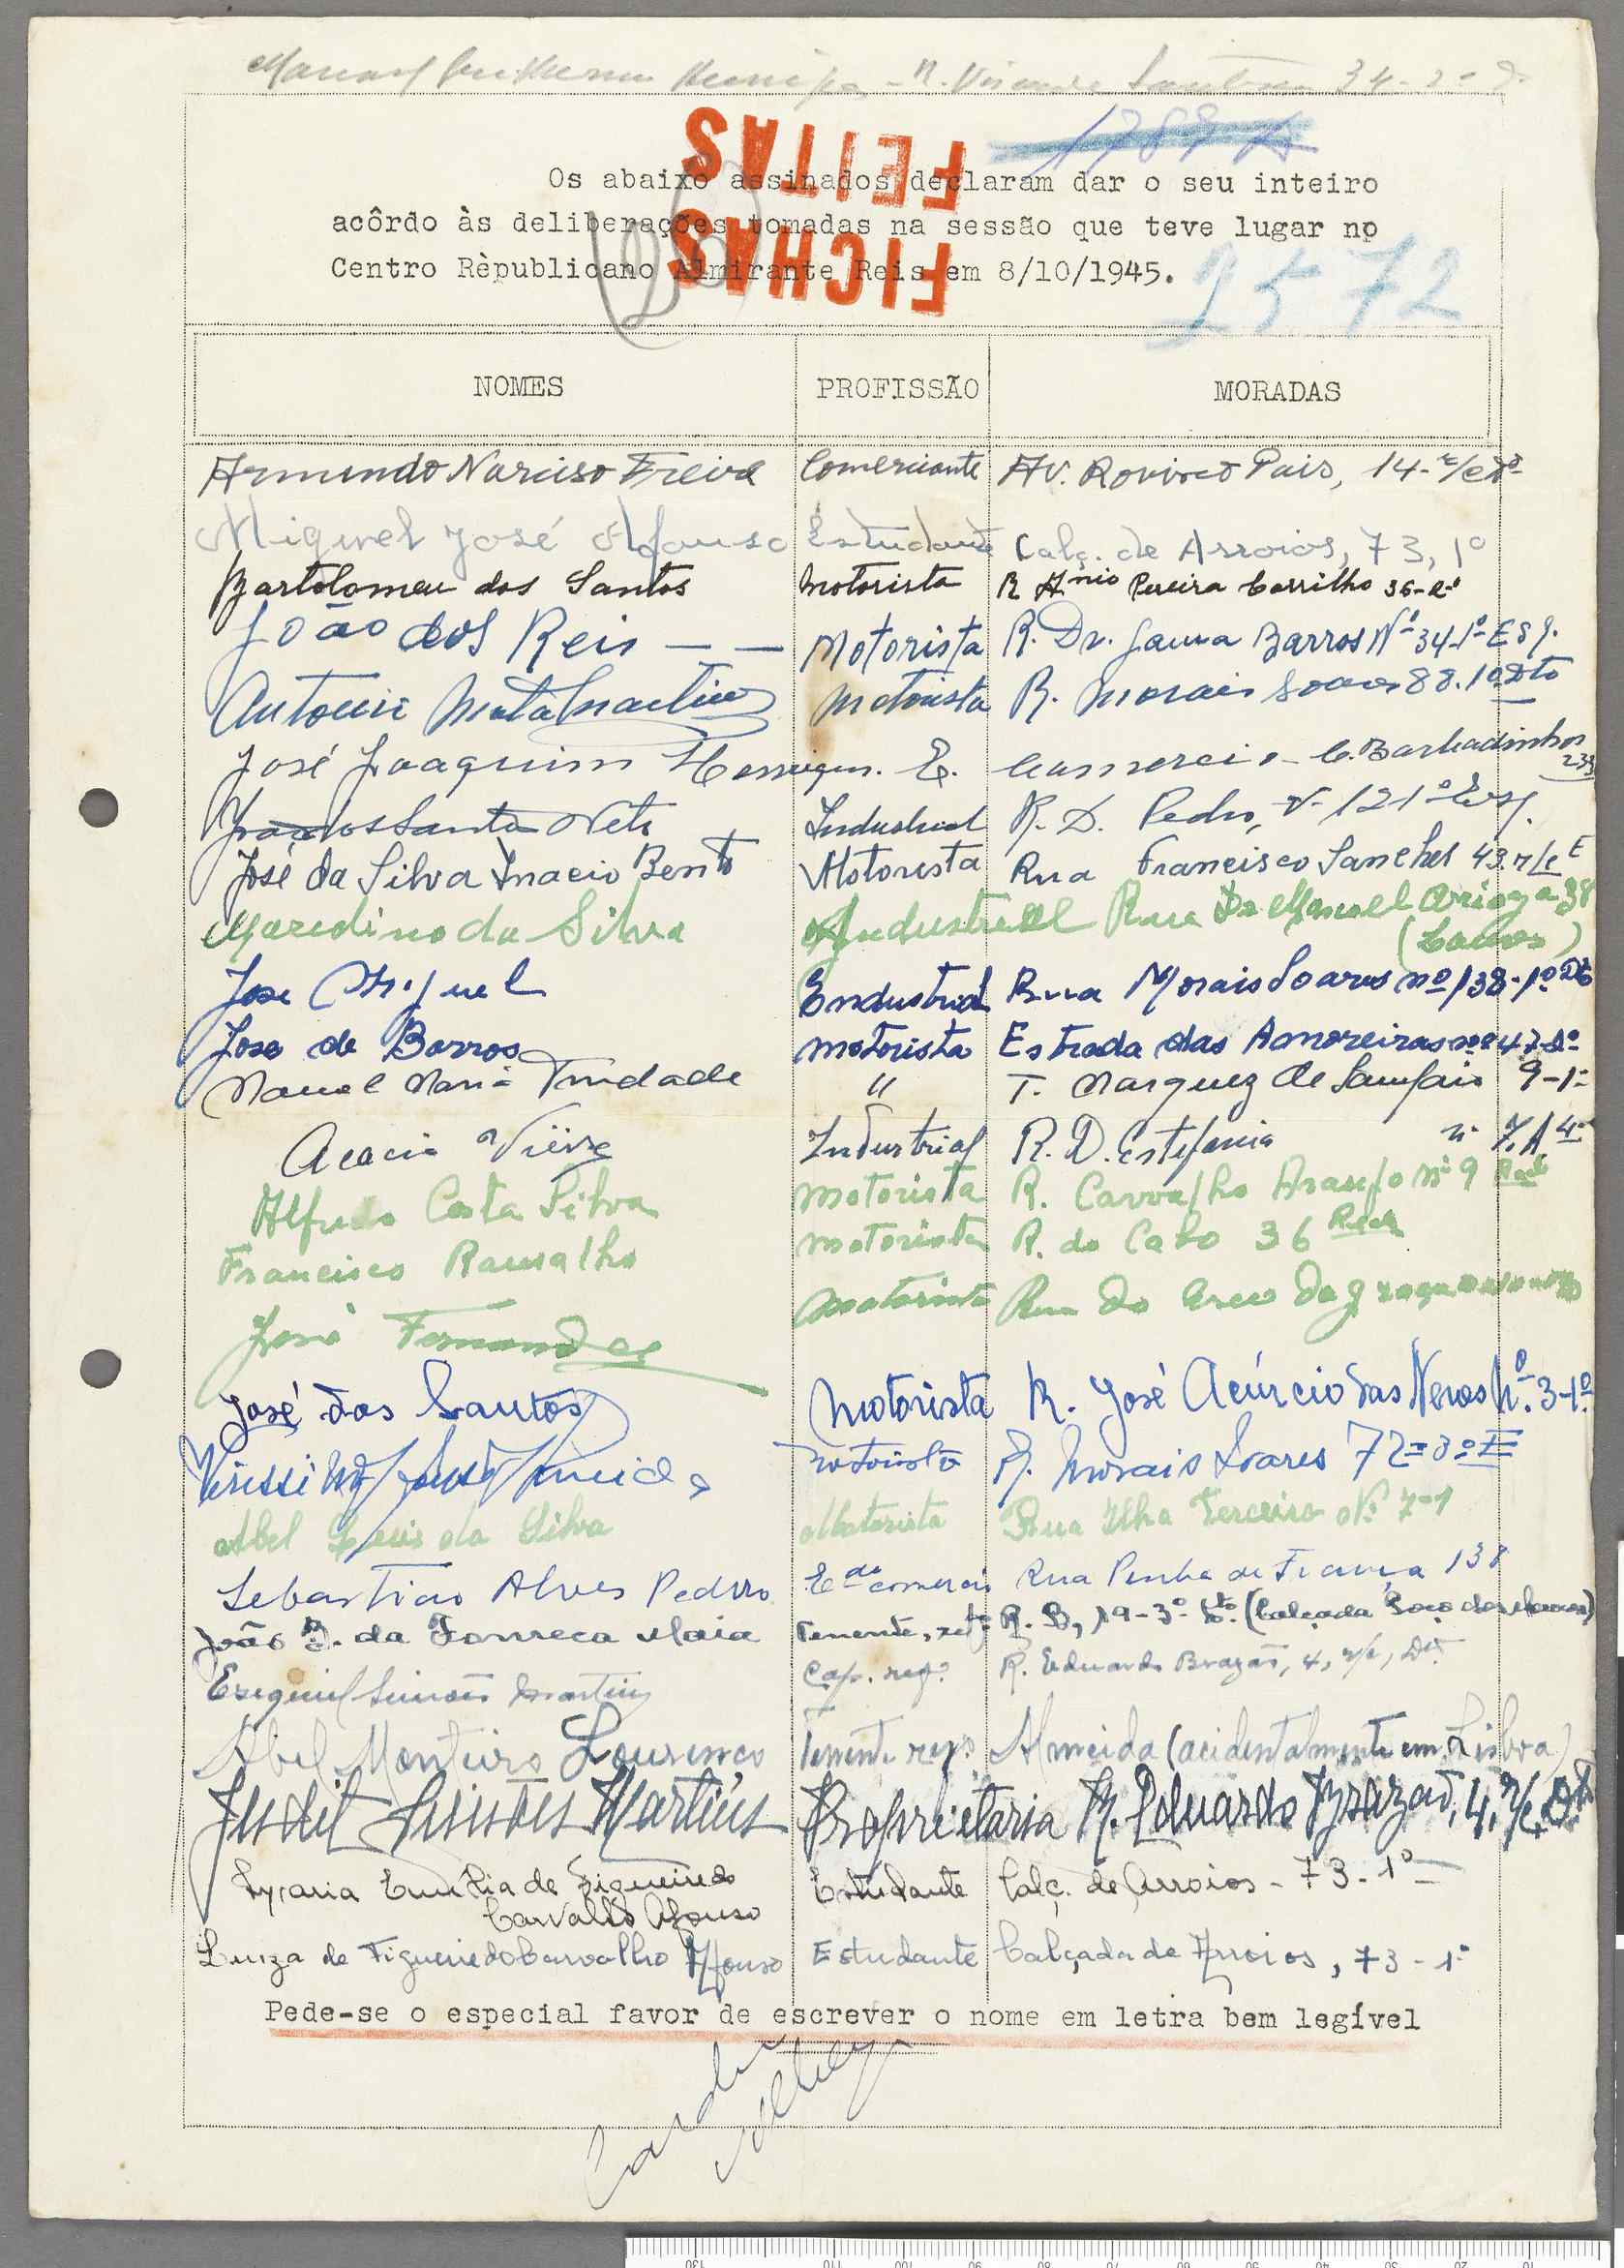 Manuel Guilherme - R. Visconde Santarem 34-2º D.
1789 A
FICHAS
FEITAS
Os abaixo assinados declaram dar o seu inteiro
acôrdo às deliberações tomadas na sessão que teve lugar no
Centro Rèpublicano Almirante Reis em 8/10/1945.
2572
NOMES PROFISSÃO MORADAS
Armundo Narciso Freire Comerciante Av. Rovisco Pais, 14-r/c
Miguel José Afonso Estudante Calç. de Arroios, 73, 1º
Bartolomeu dos Santos Motorista R Anio Pereira Carrilho 36-2º
João dos Reis — — Motorista R. Dr. Gama Barros Nº 34-1º Esq.
Antonio Mata Martins Motorista R. Morais Soares 88.1º Dto
José Joaquim E. Comercio - C. Barbadinhos 233
Santos Neto Industrial R. D. Pedro, V- 121º Esq.
José da Silva Inacio Bento Motorista Rua Francisco Sanches 43 r/c E
da Silva Industrial Rua Dr Manuel Arriaga 38
José Miguel Endustrial Rua Morais Soares nº 138-1º Dto
Jose de Barros motorista Estrada das Amoreiras nº 47-1º
Manuel Maria Trindade " T. Marquez de Sampaio 9-1º
Acacio Industrial R. D. Estefania nº 7.A 4º
Alfredo Costa Silva motorista R. Carvalho Araujo nº 9
Francisco Ramalho motorista R. do Cabo 36
José Fernandes Motorista Rua do Arco da Graça
José dos Santos Motorista R. José Acúrcio das Neves Nº. 3-1º
Verissimo Almeida Motorista R. Morais Soares 72=3º E
Abel Luis da Silva Motorista Rua Ilha Terceira Nº 7-1
Sebastião Alves Pedro Edo comercio Rua Penha de França 138
João B. da Fonseca Maia Tenente, refº R. B, 19-3º-Dto. (Calçada Poço dos Mouros)
Ezequiel Simões Martins Cap. refº. R. Eduardo Brazão, 4, r/c, Dtº
Abel Monteiro Lourenço Tenente refº. Almeida (acidentalmente em Lisboa)
Judit Simões Martins Proprietaria R. Eduardo Brazão, 4, r/c, Dtº
Maria Emilia de Figueiredo
Carvalho Afonso Estudante Calç. de Arroios - 73 - 1º
Luiza de Figueiredo Carvalho Afonso Estudante Calçada de Arroios, 73 - 1º
Pede-se o especial favor de escrever o nome em letra bem legível